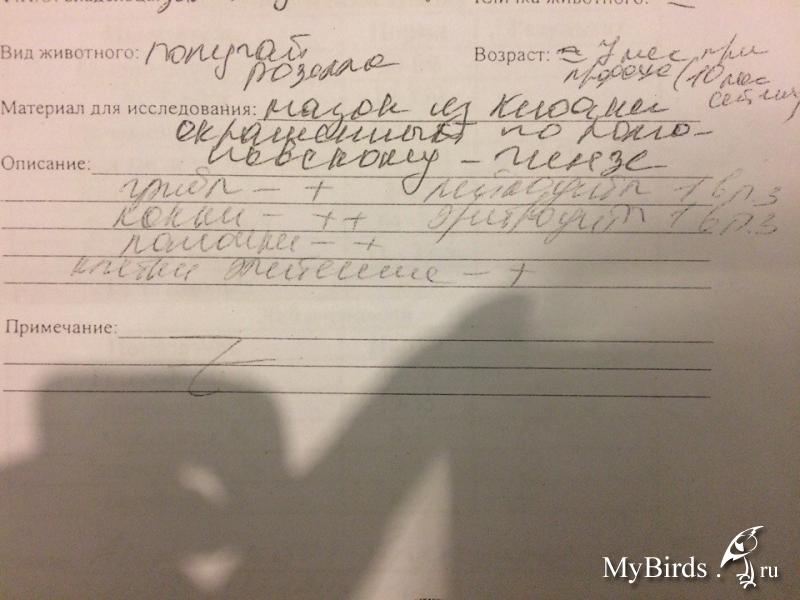 Кличка животного:
Вид животного: попугай розелла
Возраст: ≈ 7 мес при продаже (10 мес сейчас)
Материал для исследования: мазок из клоаки
окрашенный по Рома-
новскому - Гимзе
Описание:
грибы - + лейкоциты 1 в п.з
кокки - ++ эритроциты 1 в п.з
палочки - +
клетки эпителия - +
Примечание:
MyBirds.ru